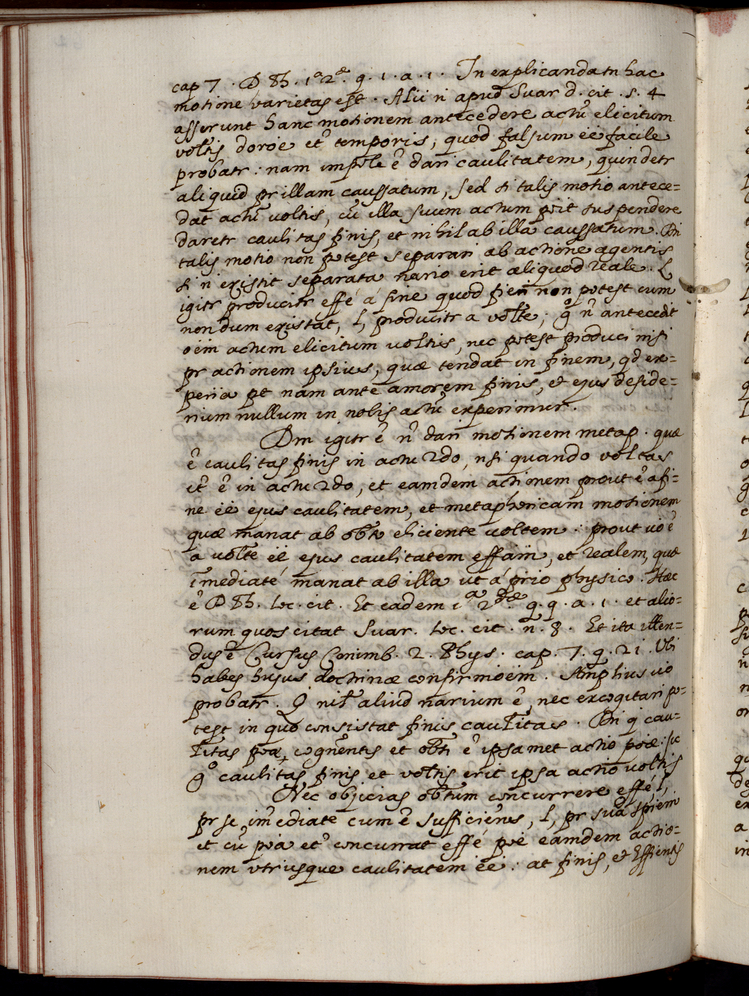 cap 7. D Th. 1ª 2ᵃᵉ q. 1. a. 1. In explicanda tn hac
motione varietas est. Alii n apud Suar d. cit. s. 4
asserunt hanc motionem antecedere actũ elicitum
voltis et temporis, quod falsum eẽ facile
probatr: nam ẽ dari caulitatem, quin detr
aliquid pr illam caussatum, sed si talis motio antece=
dat actũ voltis, cũ illa suum actum suspendere
daretr caulitas finis, et nihil ab illa caussatum.
talis motio non potest separari ab actione agentis
si n existit separata nario erit aliquod reale. L
igitr producitr effẽ á fine quod non potest cum
nondum existat, l, producitr a volte; gº nº antecedit
oẽm actum elicitum voltis, nec potest produci nisi
pr actionem ipsius, quæ tendat in finem, qd ex=
peria nam ante amorem finis, et ejus deside=
rium nullum in nobis actũ experimur.
Dm igitr ẽ nº dari motionem metap. quæ
ẽ caulitas finis in actu 2do, nsi quando voltas
etº ẽ in actu 2do, et eamdem actionem prout ẽ a fi=
ne eẽ ejus caulitatem, et metaphoricam motionem
quæ manat ab obto eliciente voltem: prout vº ẽ
a volte eẽ ejus caulitatem effam, et realem, quæ
ĩmediaté manat ab illa ut á prio physico. Hæc
ẽ D Th. loc. cit. Et eadem 1ª 2ᵈᵃᵉ q. 9. a. 1. et alio=
rum quos citat Suar. loc. cit. n. 8. Et ita
dus ẽ Cursus Conimb. 2. Phys. cap. 7. q. 21. Ubi
habes hujus doctrinæ confirmoẽm. Amplius vº
probatr. Q nil aliud narium ẽ, nec excogitari po=
test in quo consistat finis caulitas. q cau=
litas cognentis et obti ẽ ipsamet actio: sic
gº caulitas finis et voltis erit ipsa actio voltis
Nec objicias obtum concurrere effẽ l,
pr se ĩmediate cum ẽ sufficiens, l, pr suã spiem
et cũ etº concurrat effẽ eamdem actio=
nem utriusque caulitatem eẽ: at finis, et Effientis